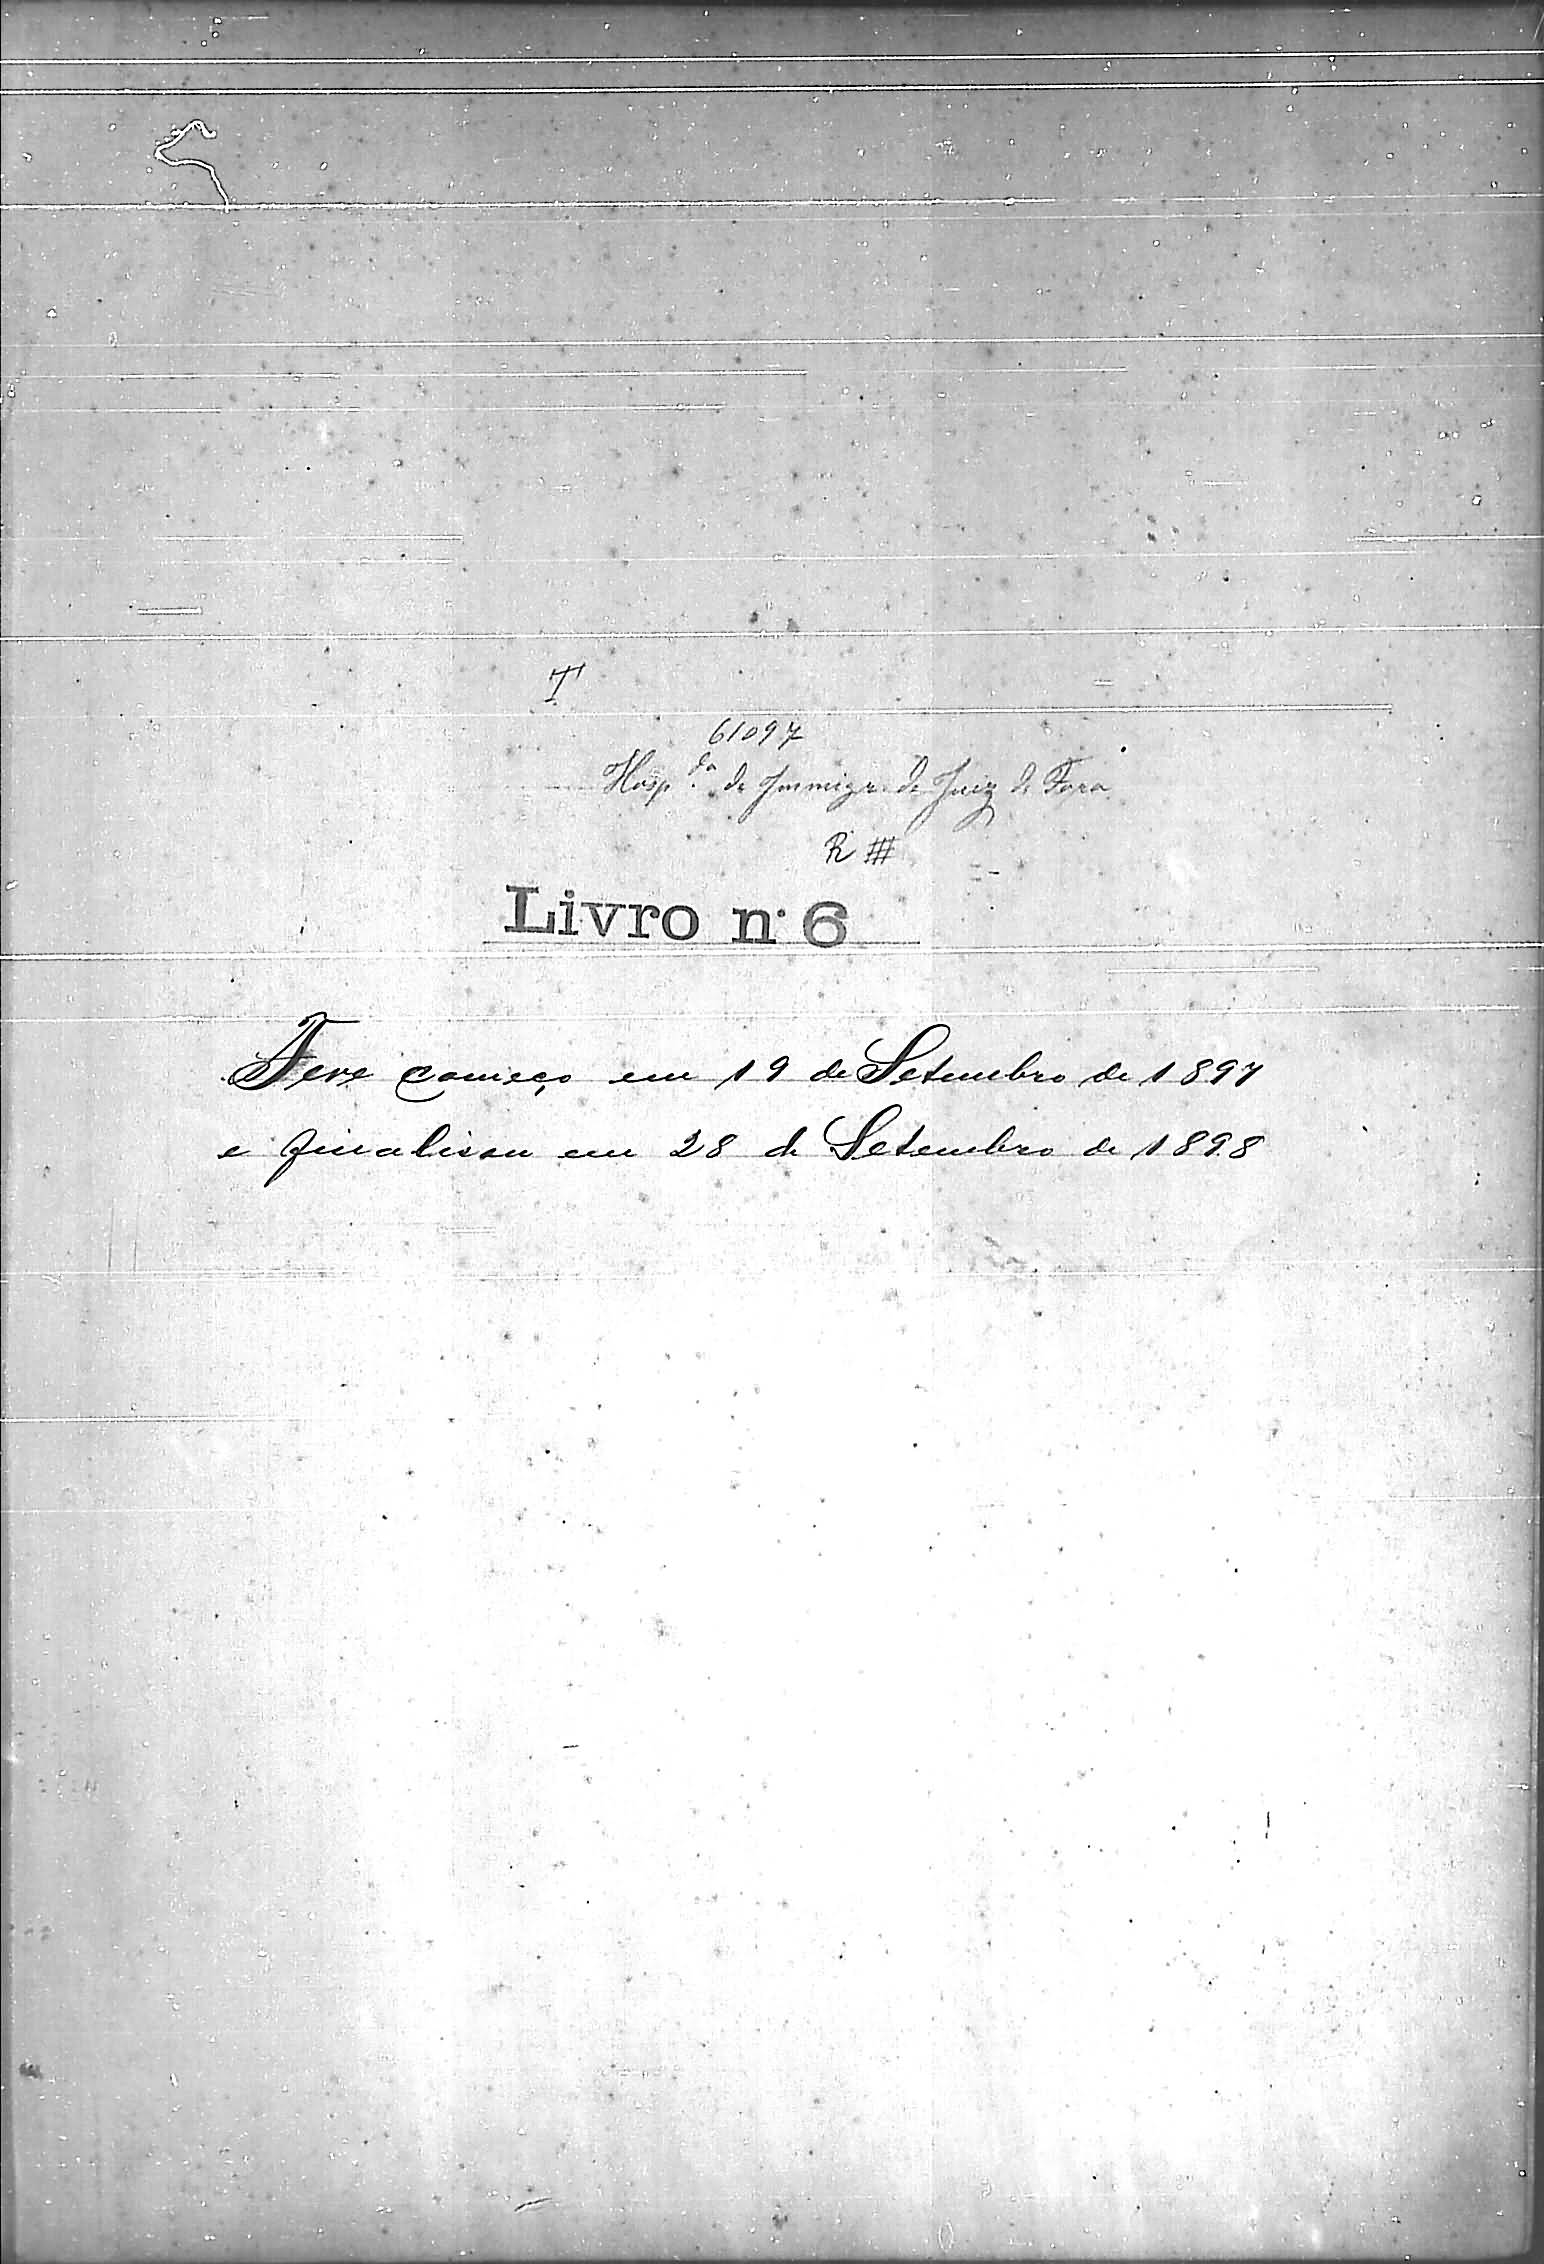 T
61097
Hosp.da de Immigr. de Juiz de Fora
R III
Livro n. 6
Teve começo em 19 de Setembro de 1897
e finalisou em 28 de Setembro de 1898